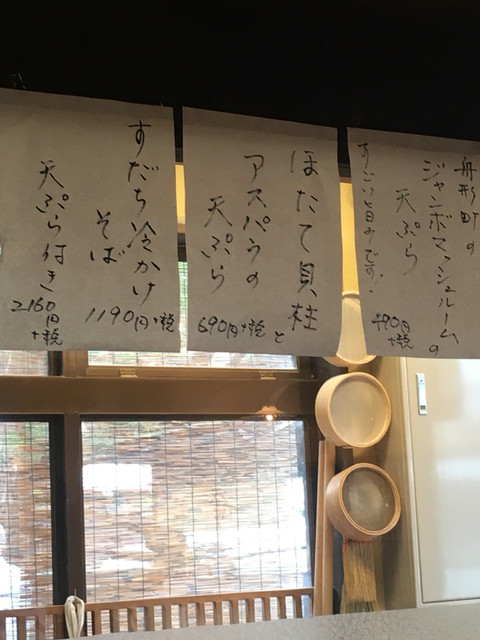 舟形町の
ジャンボマッシュルームの
天ぷら
490円
+税
すごい旨みです!
ほたて貝柱
と
アスパラの
天ぷら
690円+税
すだち冷かけ
そば
1190円+税
天ぷら付き
2160円
+税